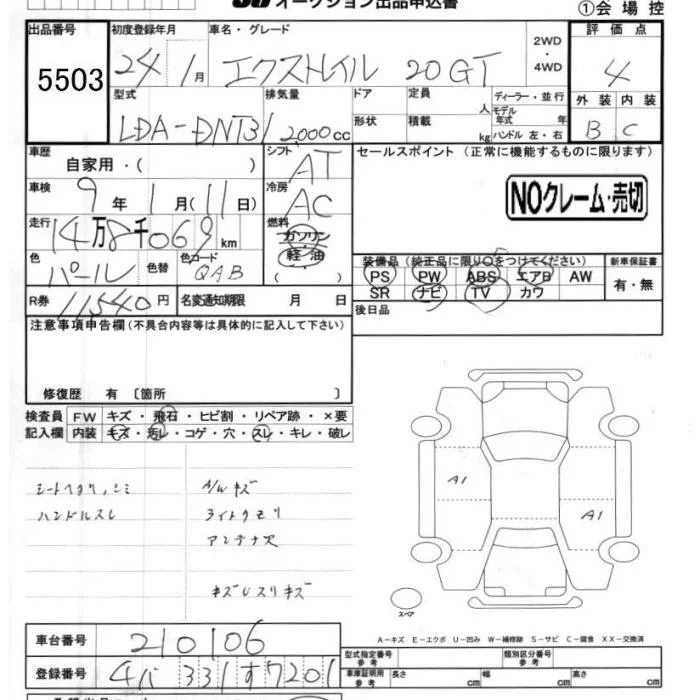 オークション出品申込書
①会場控
出品番号 初度登録年月 車名・グレード 評価点
5503 24年1月 エクストレイル 20GT 2WD・4WD 4
型式 排気量 ドア 定員 ディーラー・並行 外装 内装
LDA-DNT31 2,000cc 形状 積載 人 kg モデル年式 年 ハンドル 左・右 B C
車歴 シフト セールスポイント (正常に機能するものに限ります)
自家用・( ) AT
車検 9年1月(11日) 冷房 AC
NOクレーム・売切
走行 14万8千069km 燃料 ガソリン
軽油
( )
色 パール 色替 色コード QAB
装備品(純正品に限り○をつけてください) 新車保証書
PS PW ABS エアB AW 有・無
SR ナビ TV カワ
R券 11540円 名変通知期限 月 日
後日品
注意事項申告欄(不具合内容等は具体的に記入して下さい)
修復歴 有 〔箇所 〕
検査員 FW キズ・飛石・ヒビ割・リペア跡・×要
記入欄 内装 キズ・汚レ・コゲ・穴・スレ・キレ・破レ
シートヘタリ,シミ A/Wキズ
ハンドルスレ ライトクモリ
アンテナ欠
キズUスリキズ
A1
A1
スペア
A-キズ E-エクボ U-凹み W-補修跡 S-サビ C-腐食 XX-交換済
車台番号 210106
型式指定番号 参考 類別区分番号 参考
登録番号 331す7201
車庫証明用 参考 長さ cm 幅 cm 高さ cm